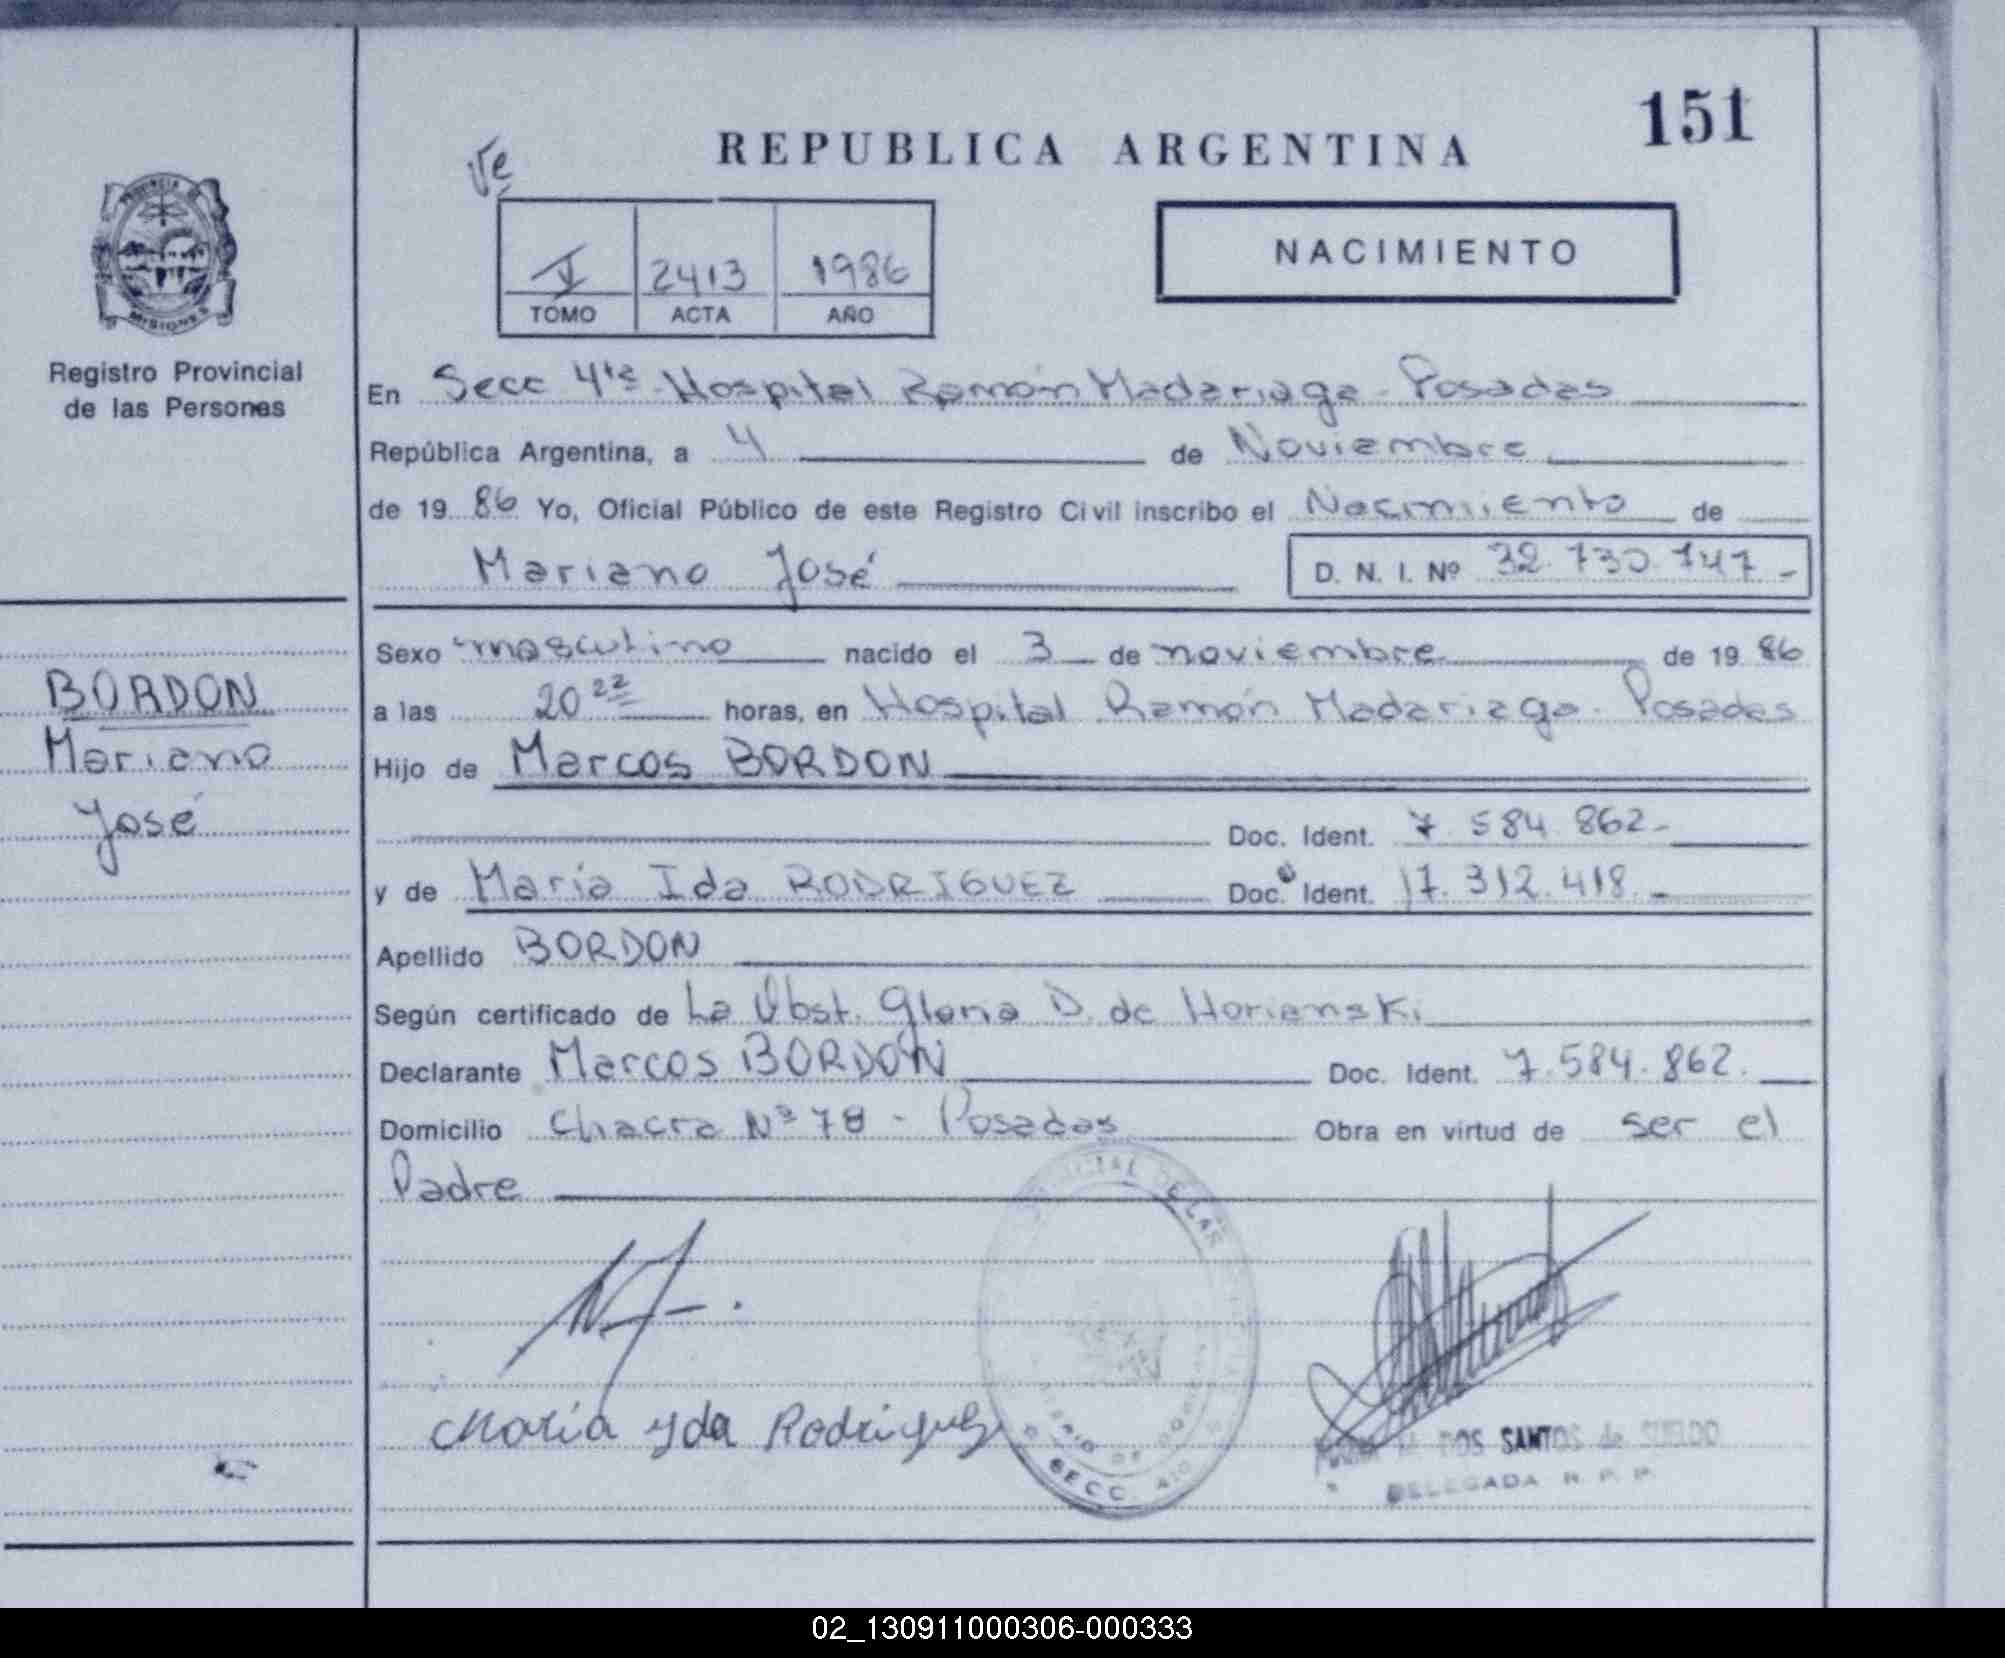 151
REPUBLICA ARGENTINA
NACIMIENTO
V 2413 1986
TOMO ACTA AÑO
PROVINCIA DE
MISIONES
Registro Provincial
de las Personas
En Secc 4ta Hospital Ramón Madariaga - Posadas
República Argentina, a 4 de Noviembre
de 1986 Yo, Oficial Público de este Registro Civil inscribo el Nacimiento de
Mariano José D. N. I. Nº 32.730.747 -
Sexo masculino nacido el 3 de noviembre de 1986
a las 20 22 horas, en Hospital Ramón Madariaga. Posadas
Hijo de Marcos BORDON
Doc. Ident. 7 584 862 -
y de María Ida RODRIGUEZ Doc. Ident. 17.312.418. -
Apellido BORDON
Según certificado de La Obst. Gloria D. de Horianski
Declarante Marcos BORDON Doc. Ident. 7.584.862.
Domicilio Chacra Nº 78 - Posadas Obra en virtud de ser el
Padre
BORDON
Mariano
José
María Yda Rodriguez
DE LAS
SECC.
DOS SANTOS de SUELDO
DELEGADA R. P. P.
02_130911000306-000333